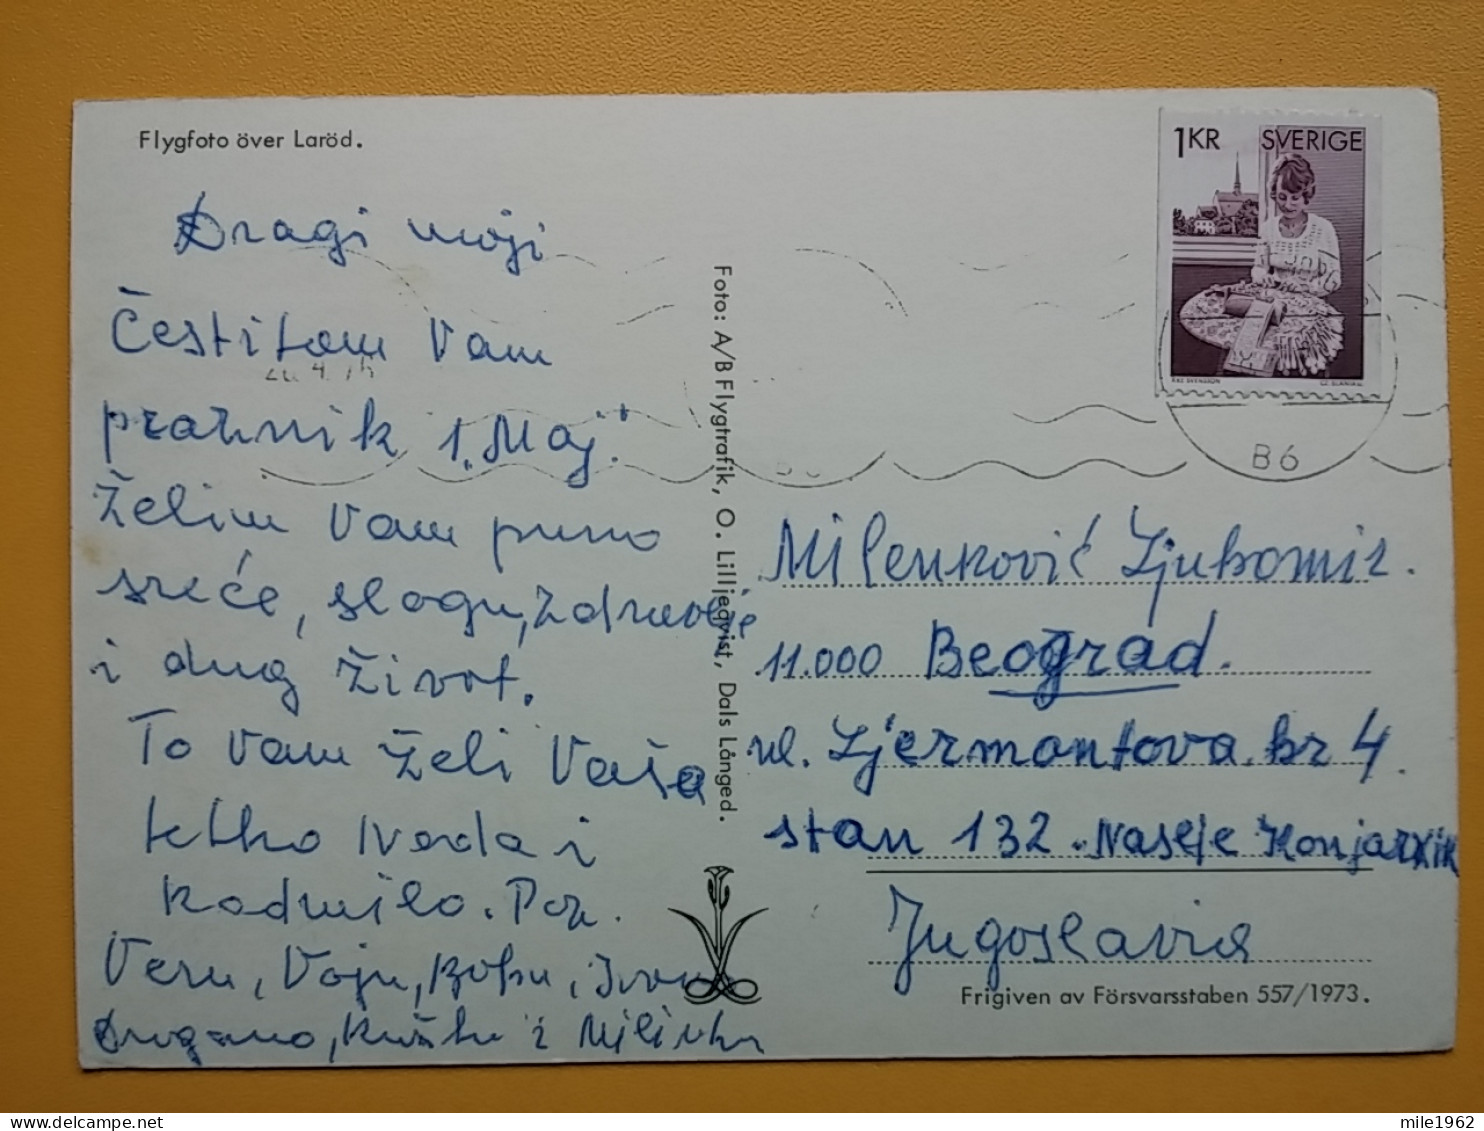 Flygfoto över Laröd.
1KR SVERIGE
Dragi moji
Čestitam Vam
praznik 1. Maj."
Želim Vam puno
sreće, slogu, zdravlje
i dug život.
To Vam želi Vaša
tetka Nada i
Radmila. Poz.
Veru, Voju, Bobu,
Dragano, i Milinka
Foto: A/B Flygtrafik, O. Lilljeqvist, Dals Långed.
B6
Milenković Ljubomir.
11.000 Beograd.
ul. Ljermontova. br 4.
stan 132. Naselje Konjarnik
Jugoslavia
Frigiven av Försvarsstaben 557/1973.
mile1962